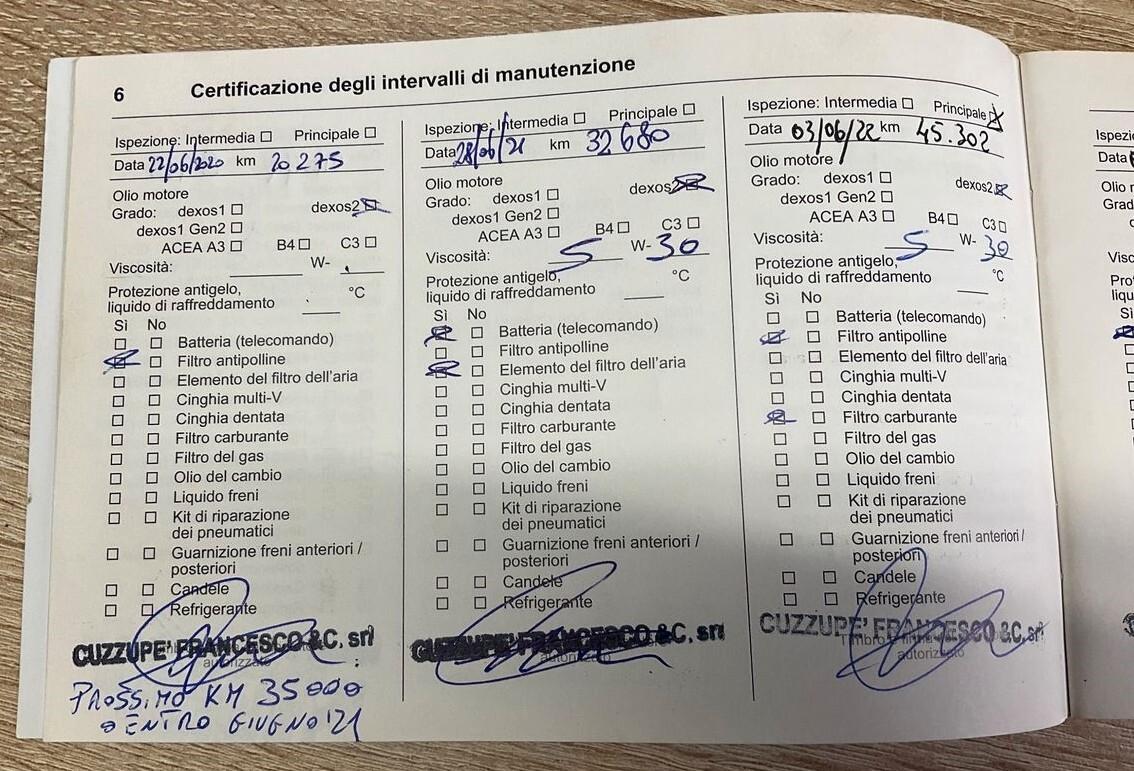 6 Certificazione degli intervalli di manutenzione
Ispezione: Intermedia Principale
Data 22/06/2020 km 20 275
Olio motore
Grado: dexos1 dexos2
dexos1 Gen2
ACEA A3 B4 C3
Viscosità: W-
Protezione antigelo,
liquido di raffreddamento °C
Sì No
Batteria (telecomando)
Filtro antipolline
Elemento del filtro dell'aria
Cinghia multi-V
Cinghia dentata
Filtro carburante
Filtro del gas
Olio del cambio
Liquido freni
Kit di riparazione
dei pneumatici
Guarnizione freni anteriori /
posteriori
Candele
Refrigerante
CUZZUPE' FRANCESCO &C. srl
autorizzato
PROSSIMO KM 35000
o ENTRO GIUGNO '21
Ispezione: Intermedia Principale
Data 28/06/21 km 32 680
Olio motore
Grado: dexos1 dexos2
dexos1 Gen2
ACEA A3 B4 C3
Viscosità: 5 W- 30
Protezione antigelo,
liquido di raffreddamento °C
Sì No
Batteria (telecomando)
Filtro antipolline
Elemento del filtro dell'aria
Cinghia multi-V
Cinghia dentata
Filtro carburante
Filtro del gas
Olio del cambio
Liquido freni
Kit di riparazione
dei pneumatici
Guarnizione freni anteriori /
posteriori
Candele
Refrigerante
CUZZUPE' FRANCESCO &C. srl
autorizzato
Ispezione: Intermedia Principale
Data 03/06/22 km 45.302
Olio motore
Grado: dexos1 dexos2
dexos1 Gen2
ACEA A3 B4 C3
Viscosità: 5 W- 30
Protezione antigelo,
liquido di raffreddamento °C
Sì No
Batteria (telecomando)
Filtro antipolline
Elemento del filtro dell'aria
Cinghia multi-V
Cinghia dentata
Filtro carburante
Filtro del gas
Olio del cambio
Liquido freni
Kit di riparazione
dei pneumatici
Guarnizione freni anteriori /
posteriori
Candele
Refrigerante
CUZZUPE' FRANCESCO &C. srl
Timbro autorizzato
Data
Sì